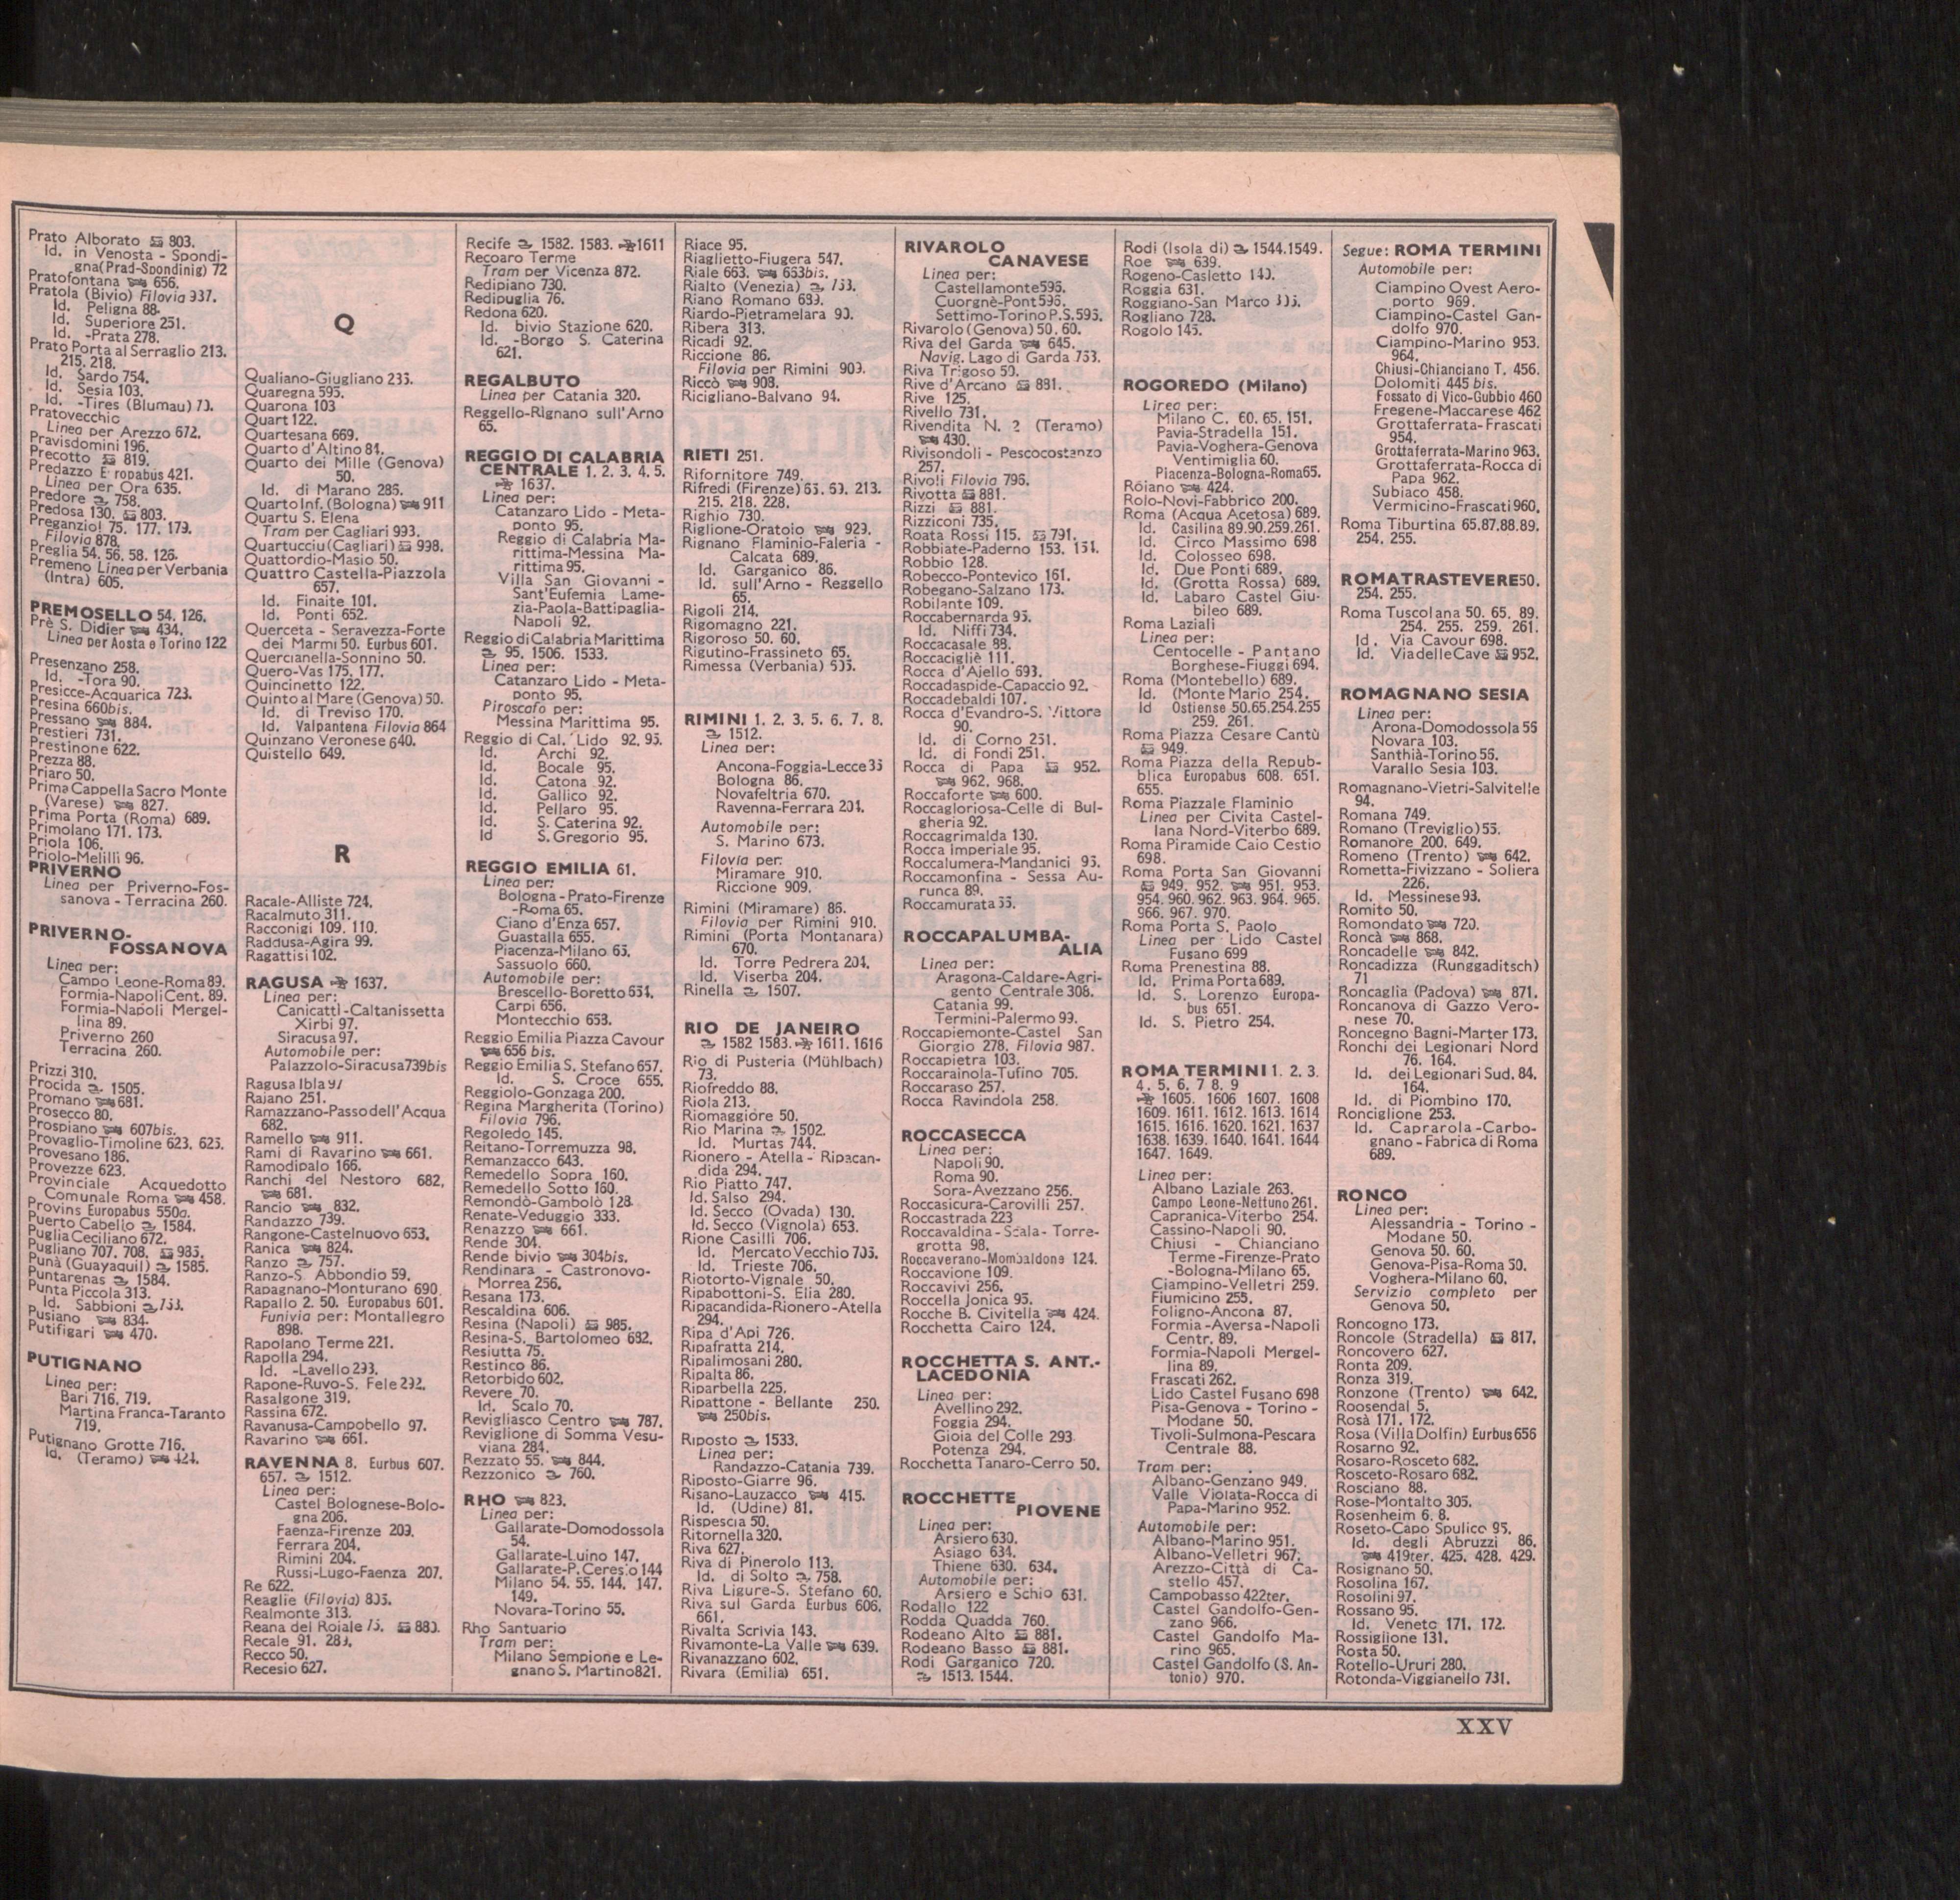 Prato Alborato 803.
Id. in Venosta - Spondi-
gna(Prad-Spondinig) 72
Pratofontana 656.
Pratola (Bivio) Filovia 937.
Id. Peligna 88.
Id. Superiore 251.
Id. -Prata 278.
Prato Porta al Serraglio 213.
215. 218.
Id. Sardo 754.
Id. Sesia 103.
Id. -Tires (Blumau) 70.
Pratovecchio
Linea per Arezzo 672.
Pravisdomini 196.
Precotto 819.
Predazzo E ropabus 421.
Linea per Ora 635.
Predore 758.
Predosa 130. 803.
Preganziol 75. 177. 179.
Filovia 878.
Preglia 54. 56. 58. 126.
Premeno Linea per Verbania
(Intra) 605.
PREMOSELLO 54. 126.
Prè S. Didier 434.
Linea per Aosta e Torino 122
Presenzano 258.
Id. -Tora 90.
Presicce-Acquarica 723.
Presina 660bis.
Pressano 884.
Prestieri 731.
Prestinone 622.
Prezza 88.
Priaro 50.
Prima Cappella Sacro Monte
(Varese) 827.
Prima Porta (Roma) 689.
Primolano 171. 173.
Priola 106.
Priolo-Melilli 96.
PRIVERNO
Linea per Priverno-Fos-
sanova - Terracina 260.
PRIVERNO-
FOSSANOVA
Linea per:
Campo Leone-Roma 89.
Formia-Napoli Cent. 89.
Formia-Napoli Mergel-
lina 89.
Priverno 260
Terracina 260.
Prizzi 310.
Procida 1505.
Promano 681.
Prosecco 80.
Prospiano 607bis.
Provaglio-Timoline 623. 625.
Provesano 186.
Provezze 623.
Provinciale Acquedotto
Comunale Roma 458.
Provins Europabus 550a.
Puerto Cabello 1584.
Puglia Ceciliano 672.
Pugliano 707. 708. 985.
Punà (Guayaquil) 1585.
Puntarenas 1584.
Punta Piccola 313.
Id. Sabbioni 753.
Pusiano 834.
Putifigari 470.
PUTIGNANO
Linea per:
Bari 716. 719.
Martina Franca-Taranto
719.
Putignano Grotte 716.
Id. (Teramo) 424.
Q
Qualiano-Giugliano 235.
Quaregna 595.
Quarona 103
Quart 122.
Quartesana 669.
Quarto d'Altino 84.
Quarto dei Mille (Genova)
50.
Id. di Marano 286.
Quarto Inf. (Bologna) 911
Quartu S. Elena
Tram per Cagliari 993.
Quartucciu (Cagliari) 998.
Quattordio-Masio 50.
Quattro Castella-Piazzola
657.
Id. Finaite 101.
Id. Ponti 652.
Querceta - Seravezza-Forte
dei Marmi 50. Eurbus 601.
Quercianella-Sonnino 50.
Quero-Vas 175. 177.
Quincinetto 122.
Quinto al Mare (Genova) 50.
Id. di Treviso 170.
Id. Valpantena Filovia 864
Quinzano Veronese 640.
Quistello 649.
R
Racale-Alliste 724.
Racalmuto 311.
Racconigi 109. 110.
Raddusa-Agira 99.
Ragattisi 102.
RAGUSA 1637.
Linea per:
Canicattì-Caltanissetta
Xirbi 97.
Siracusa 97.
Automobile per:
Palazzolo-Siracusa 739bis
Ragusa Ibla 97
Raiano 251.
Ramazzano-Passo dell'Acqua
682.
Ramello 911.
Rami di Ravarino 661.
Ramodipalo 166.
Ranchi del Nestoro 682.
681.
Rancio 832.
Randazzo 739.
Rangone-Castelnuovo 653.
Ranica 824.
Ranzo 757.
Ranzo-S. Abbondio 59.
Rapagnano-Monturano 690.
Rapallo 2. 50. Europabus 601.
Funivia per: Montallegro
898.
Rapolano Terme 221.
Rapolla 294.
Id. -Lavello 293.
Rapone-Ruvo-S. Fele 292.
Rasalgone 319.
Rassina 672.
Ravanusa-Campobello 97.
Ravarino 661.
RAVENNA 8. Eurbus 607.
657. 1512.
Linea per:
Castel Bolognese-Bolo-
gna 206.
Faenza-Firenze 209.
Ferrara 204.
Rimini 204.
Russi-Lugo-Faenza 207.
Re 622.
Reaglie (Filovia) 805.
Realmonte 313.
Reana del Roiale 75. 880.
Recale 91. 289.
Recco 50.
Recesio 627.
Recife 1582. 1583. 1611
Recoaro Terme
Tram per Vicenza 872.
Redipiano 730.
Redipuglia 76.
Redona 620.
Id. bivio Stazione 620.
Id. -Borgo S. Caterina
621.
REGALBUTO
Linea per Catania 320.
Reggello-Rignano sull'Arno
65.
REGGIO DI CALABRIA
CENTRALE 1. 2. 3. 4. 5.
1637.
Linea per:
Catanzaro Lido - Meta-
ponto 95.
Reggio di Calabria Ma-
rittima-Messina Ma-
rittima 95.
Villa San Giovanni -
Sant'Eufemia Lame-
zia-Paola-Battipaglia-
Napoli 92.
Reggio di Calabria Marittima
95. 1506. 1533.
Linea per:
Catanzaro Lido - Meta-
ponto 95.
Piroscafo per:
Messina Marittima 95.
Reggio di Cal. Lido 92. 95.
Id. Archi 92.
Id. Bocale 95.
Id. Catona 92.
Id. Gallico 92.
Id. Pellaro 95.
Id. S. Caterina 92.
Id S. Gregorio 95.
REGGIO EMILIA 61.
Linea per:
Bologna - Prato-Firenze
-Roma 65.
Ciano d'Enza 657.
Guastalla 655.
Piacenza-Milano 65.
Sassuolo 660.
Automobile per:
Brescello-Boretto 654.
Carpi 656.
Montecchio 653.
Reggio Emilia Piazza Cavour
656 bis.
Reggio Emilia S. Stefano 657.
Id. S. Croce 655.
Reggiolo-Gonzaga 200.
Regina Margherita (Torino)
Filovia 796.
Regoledo 145.
Reitano-Torremuzza 98.
Remanzacco 643.
Remedello Sopra 160.
Remedello Sotto 160.
Remondò-Gambolò 128.
Renate-Veduggio 333.
Renazzo 661.
Rende 304.
Rende bivio 304bis.
Rendinara - Castronovo-
Morrea 256.
Resana 173.
Rescaldina 606.
Resina (Napoli) 985.
Resina-S. Bartolomeo 682.
Resiutta 75.
Restinco 86.
Retorbido 602.
Revere 70.
Id. Scalo 70.
Revigliasco Centro 787.
Reviglione di Somma Vesu-
viana 284.
Rezzato 55. 844.
Rezzonico 760.
RHO 823.
Linea per:
Gallarate-Domodossola
54.
Gallarate-Luino 147.
Gallarate-P. Ceresio 144
Milano 54. 55. 144. 147.
149.
Novara-Torino 55.
Rho Santuario
Tram per:
Milano Sempione e Le-
gnano S. Martino 821.
Riace 95.
Riaglietto-Fiugera 547.
Riale 663. 663bis.
Rialto (Venezia) 753.
Riano Romano 689.
Riardo-Pietramelara 90.
Ribera 313.
Ricadi 92.
Riccione 86.
Filovia per Rimini 909.
Riccò 908.
Ricigliano-Balvano 94.
RIETI 251.
Rifornitore 749.
Rifredi (Firenze) 65. 69. 213.
215. 218. 228.
Righio 730.
Riglione-Oratoio 929.
Rignano Flaminio-Faleria -
Calcata 689.
Id. Garganico 86.
Id. sull'Arno - Reggello
65.
Rigoli 214.
Rigomagno 221.
Rigoroso 50. 60.
Rigutino-Frassineto 65.
Rimessa (Verbania) 595.
RIMINI 1. 2. 3. 5. 6. 7. 8.
1512.
Linea per:
Ancona-Foggia-Lecce 86
Bologna 86.
Novafeltria 670.
Ravenna-Ferrara 204.
Automobile per:
S. Marino 673.
Filovia per:
Miramare 910.
Riccione 909.
Rimini (Miramare) 86.
Filovia per Rimini 910.
Rimini (Porta Montanara)
670.
Id. Torre Pedrera 204.
Id. Viserba 204.
Rinella 1507.
RIO DE JANEIRO
1582 1583. 1611. 1616
Rio di Pusteria (Mühlbach)
73.
Riofreddo 88.
Riola 213.
Riomaggiore 50.
Rio Marina 1502.
Id. Murtas 744.
Rionero - Atella - Ripacan-
dida 294.
Rio Piatto 747.
Id. Salso 294.
Id. Secco (Ovada) 130.
Id. Secco (Vignola) 653.
Rione Casilli 706.
Id. Mercato Vecchio 705.
Id. Trieste 706.
Riotorto-Vignale 50.
Ripabottoni-S. Elia 280.
Ripacandida-Rionero-Atella
294.
Ripa d'Api 726.
Ripafratta 214.
Ripalimosani 280.
Ripalta 86.
Riparbella 225.
Ripattone - Bellante 250.
250bis.
Riposto 1533.
Linea per:
Randazzo-Catania 739.
Riposto-Giarre 96.
Risano-Lauzacco 415.
Id. (Udine) 81.
Rispescia 50.
Ritornella 320.
Riva 627.
Riva di Pinerolo 113.
Id. di Solto 758.
Riva Ligure-S. Stefano 60.
Riva sul Garda Eurbus 606.
661.
Rivalta Scrivia 143.
Rivamonte-La Valle 639.
Rivanazzano 602.
Rivara (Emilia) 651.
RIVAROLO
CANAVESE
Linea per:
Castellamonte 595.
Cuorgnè-Pont 595.
Settimo-Torino P.S. 595.
Rivarolo (Genova) 50. 60.
Riva del Garda 645.
Navig. Lago di Garda 753.
Riva Trigoso 50.
Rive d'Arcano 881.
Rive 125.
Rivello 731.
Rivendita N. 2 (Teramo)
430.
Rivisondoli - Pescocostanzo
257.
Rivoli Filovia 796.
Rivotta 881.
Rizzi 881.
Rizziconi 735.
Roata Rossi 115. 791.
Robbiate-Paderno 153. 154.
Robbio 128.
Robecco-Pontevico 161.
Robegano-Salzano 173.
Robilante 109.
Roccabernarda 95.
Id. Niffi 734.
Roccacasale 88.
Roccacigliè 111.
Rocca d'Ajello 693.
Roccadaspide-Capaccio 92.
Roccadebaldi 107.
Rocca d'Evandro-S. Vittore
90.
Id. di Corno 251.
Id. di Fondi 251.
Rocca di Papa 952.
962. 968.
Roccaforte 600.
Roccagloriosa-Celle di Bul-
gheria 92.
Roccagrimalda 130.
Rocca Imperiale 95.
Roccalumera-Mandanici 96.
Roccamonfina - Sessa Au-
runca 89.
Roccamurata 66.
ROCCAPALUMBA-
ALIA
Linea per:
Aragona-Caldare-Agri-
gento Centrale 308.
Catania 99.
Termini-Palermo 99.
Roccapiemonte-Castel San
Giorgio 278. Filovia 987.
Roccapietra 103.
Roccarainola-Tufino 705.
Roccaraso 257.
Rocca Ravindola 258.
ROCCASECCA
Linea per:
Napoli 90.
Roma 90.
Sora-Avezzano 256.
Roccasicura-Carovilli 257.
Roccastrada 223
Roccavaldina - Scala - Torre-
grotta 98.
Roccaverano-Mombaldone 124.
Roccavione 109.
Roccavivi 256.
Roccella Jonica 95.
Rocche B. Civitella 424.
Rocchetta Cairo 124.
ROCCHETTA S. ANT.-
LACEDONIA
Linea per:
Avellino 292.
Foggia 294.
Gioia del Colle 293
Potenza 294.
Rocchetta Tanaro-Cerro 50.
ROCCHETTE
PIOVENE
Linea per:
Arsiero 630.
Asiago 634.
Thiene 630. 634.
Automobile per:
Arsiero e Schio 631.
Rodallo 122
Rodda Quadda 760.
Rodeano Alto 881.
Rodeano Basso 881.
Rodi Garganico 720.
1513. 1544.
Rodi (Isola di) 1544. 1549.
Roe 639.
Rogeno-Casletto 140.
Roggia 631.
Roggiano-San Marco 305.
Rogliano 728.
Rogolo 145.
ROGOREDO (Milano)
Linea per:
Milano C. 60. 65. 151.
Pavia-Stradella 151.
Pavia-Voghera-Genova
Ventimiglia 60.
Piacenza-Bologna-Roma 65.
Roiano 424.
Rolo-Novi-Fabbrico 200.
Roma (Acqua Acetosa) 689.
Id. Casilina 89. 90. 259. 261.
Id. Circo Massimo 698
Id. Colosseo 698.
Id. Due Ponti 689.
Id. (Grotta Rossa) 689.
Id. Labaro Castel Giu-
bileo 689.
Roma Laziali
Linea per:
Centocelle - Pantano
Borghese-Fiuggi 694.
Roma (Montebello) 689.
Id. (Monte Mario 254.
Id Ostiense 50. 65. 254. 255
259. 261.
Roma Piazza Cesare Cantù
949.
Roma Piazza della Repub-
blica Europabus 608. 651.
655.
Roma Piazzale Flaminio
Linea per Civita Castel-
lana Nord-Viterbo 689.
Roma Piramide Caio Cestio
698.
Roma Porta San Giovanni
949. 952. 951. 953.
954. 960. 962. 963. 964. 965.
966. 967. 970.
Roma Porta S. Paolo
Linea per Lido Castel
Fusano 699
Roma Prenestina 88.
Id. Prima Porta 689.
Id. S. Lorenzo Europa-
bus 651.
Id. S. Pietro 254.
ROMA TERMINI 1. 2. 3.
4. 5. 6. 7 8. 9
1605. 1606 1607. 1608
1609. 1611. 1612. 1613. 1614
1615. 1616. 1620. 1621. 1637
1638. 1639. 1640. 1641. 1644
1647. 1649.
Linea per:
Albano Laziale 263.
Campo Leone-Nettuno 261.
Capranica-Viterbo 254.
Cassino-Napoli 90.
Chiusi - Chianciano
Terme-Firenze-Prato
-Bologna-Milano 65.
Ciampino-Velletri 259.
Fiumicino 255.
Foligno-Ancona 87.
Formia -Aversa-Napoli
Centr. 89.
Formia-Napoli Mergel-
lina 89.
Frascati 262.
Lido Castel Fusano 698
Pisa-Genova - Torino -
Modane 50.
Tivoli-Sulmona-Pescara
Centrale 88.
Tram per:
Albano-Genzano 949.
Valle Violata-Rocca di
Papa-Marino 952.
Automobile per:
Albano-Marino 951.
Albano-Velletri 967.
Arezzo-Città di Ca-
stello 457.
Campobasso 422ter.
Castel Gandolfo-Gen-
zano 966.
Castel Gandolfo Ma-
rino 965.
Castel Gandolfo (S. An-
tonio) 970.
Segue: ROMA TERMINI
Automobile per:
Ciampino Ovest Aero-
porto 969.
Ciampino-Castel Gan-
dolfo 970.
Ciampino-Marino 953.
964.
Chiusi-Chianciano T. 456.
Dolomiti 445 bis.
Fossato di Vico-Gubbio 460
Fregene-Maccarese 462
Grottaferrata-Frascati
954.
Grottaferrata-Marino 963.
Grottaferrata-Rocca di
Papa 962.
Subiaco 458.
Vermicino-Frascati 960.
Roma Tiburtina 65. 87. 88. 89.
254. 255.
ROMA TRASTEVERE 50.
254. 255.
Roma Tuscolana 50. 65. 89.
254. 255. 259. 261.
Id. Via Cavour 698.
Id. Via delle Cave 952.
ROMAGNANO SESIA
Linea per:
Arona-Domodossola 56
Novara 103.
Santhià-Torino 56.
Varallo Sesia 103.
Romagnano-Vietri-Salvitelle
94.
Romana 749.
Romano (Treviglio) 55.
Romanore 200. 649.
Romeno (Trento) 642.
Rometta-Fivizzano - Soliera
226.
Id. Messinese 98.
Romito 50.
Romondato 720.
Roncà 868.
Roncadelle 842.
Roncadizza (Runggaditsch)
71
Roncaglia (Padova) 871.
Roncanova di Gazzo Vero-
nese 70.
Roncegno Bagni-Marter 173.
Ronchi dei Legionari Nord
76. 164.
Id. dei Legionari Sud. 84.
164.
Id. di Piombino 170.
Ronciglione 253.
Id. Caprarola -Carbo-
gnano - Fabrica di Roma
689.
RONCO
Linea per:
Alessandria - Torino -
Modane 50.
Genova 50. 60.
Genova-Pisa-Roma 50.
Voghera-Milano 60.
Servizio completo per
Genova 50.
Roncogno 173.
Roncole (Stradella) 817.
Roncovero 627.
Ronta 209.
Ronza 319.
Ronzone (Trento) 642.
Roosendal 5.
Rosà 171. 172.
Rosa (Villa Dolfin) Eurbus 656
Rosarno 92.
Rosaro-Rosceto 682.
Rosceto-Rosaro 682.
Rosciano 88.
Rose-Montalto 305.
Rosenheim 6. 8.
Roseto-Capo Spulico 95.
Id. degli Abruzzi 86.
419ter. 425. 428. 429.
Rosignano 50.
Rosolina 167.
Rosolini 97.
Rossano 95.
Id. Veneto 171. 172.
Rossiglione 131.
Rosta 50.
Rotello-Ururi 280.
Rotonda-Viggianello 731.
XXV